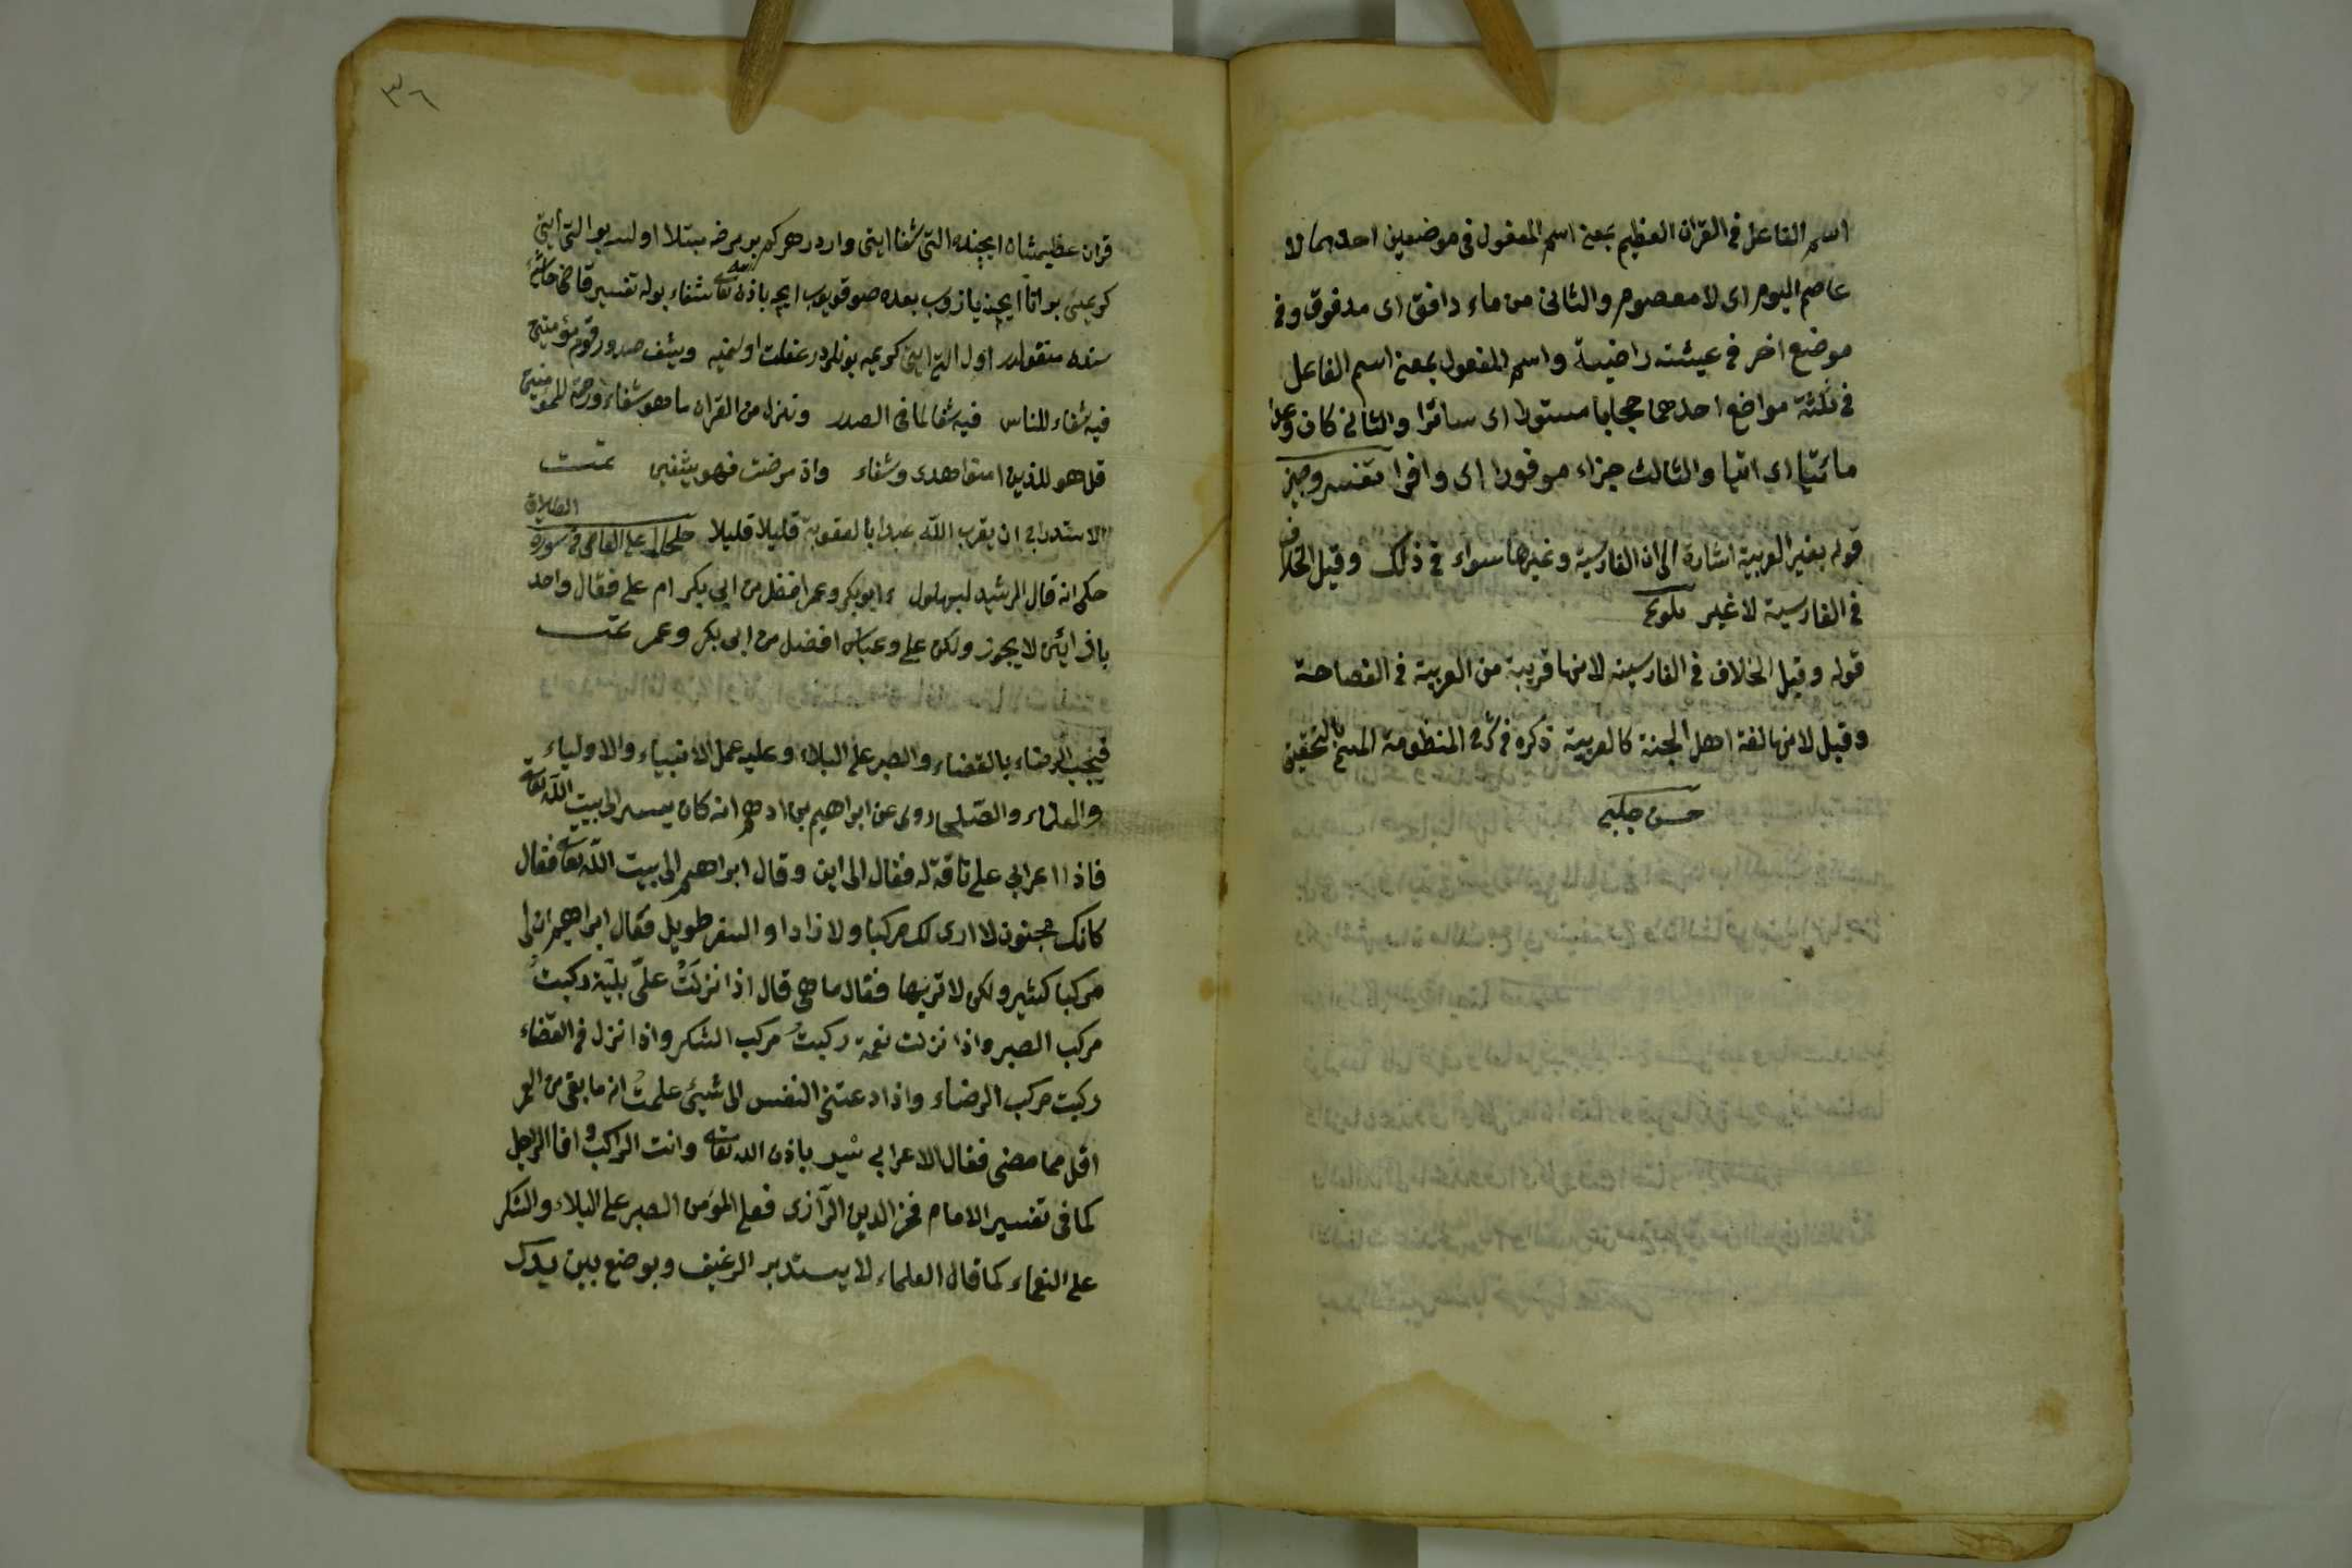 اسم الفاعل فى القران العظيم بمعنى اسم المفعول فى موضعين احدهما لا
عاصم اليوم اى لا معصوم والثانى من ماء دافق اى مدفوق وفى
موضع اخر فى عيشته راضية واسم المفعول بمعنى اسم الفاعل
فى ثلثة مواضع احدهما حجابا مستورا اى ساترا والثانى كان وعدا
مأتيا اى اتيا والثالث جزاء موفورا اى وافرا تفسير وجيز
قوله بغير العربية اشارة الى ان الفارسية وغيرها سواء فى ذلك وقيل الخلاف
فى الفارسية لا غير تلويح
قوله وقيل الخلاف فى الفارسية لانها قريبة من العربية فى الفصاحة
وقيل لانها لغة اهل الجنة كالعربية ذكره فى شرح المنظومة المسمى بالتحقيق
حسن چلبى
٣٦
قران عظيمشاه ايچنده التى شفا ايتى واردر هركه بر مرضه مبتلا اولسه بو التى ايتى
كريمى بر اناء ايچنه يازوب بعده صو قويوب ايچه باذن الله تعالى شفاء بوله تفسير قاضى حاشيه
سنده منقولدر اول التى ايتى كريمه بونلردر غفلت اولنميه ويشف صدور قوم مؤمنين
فيه شفاء للناس فيه شفا لما فى الصدر وننزل من القران ما هو شفاء ورحمة للمؤمنين
قل هو للذين امنوا هدى وشفاء واذ مرضت فهو يشفين تمت
الاستدراج ان يقرب الله عبدا بالعقوبة قليلا قليلا على القاضى فى سورة
الطلاق
حكى انه قال الرشيد لبهلول ءابوبكر وعمر افضل من ابى بكر ام على فقال واحد
لا يجوز ولكن على وعباس افضل من ابى بكر وعمر تمت
فيجب الرضاء بالقضاء والصبر على البلاء وعليه عمل الانبياء والاولياء
والعلماء والصلحاء روى عن ابراهيم بن ادهم انه كان يسير الى بيت الله تعالى
فاذا اعرابي على ناقة له فقال الى اين وقال ابراهيم الى بيت الله تعالى فقال
كانك مجنون لا ارى لك مركبا ولا زادا والسفر طويل فقال ابراهيم ان لى
مركبا كثير ولكن لا ترىها فقال ما هى قال اذا نزلَتْ علىّ بليّة ركبتُ
مركب الصبر واذا نزلت نعمة ركبتُ مركب الشكر واذا نزل فى القضاء
ركبت مركب الرضاء واذا دعتنى النفس الى شيئ علمتُ انه ما بقى من العمر
اقل مما مضى فقال الاعرابي سِرْ باذن الله تعالى وانت الراكب وانا الراجل
كما فى تفسير الامام فخر الدين الرازى فعلى المؤمن الصبر على البلاء والشكر
على النعماء كما قال العلماء لا يستدير الرغيف ويوضع بين يدك